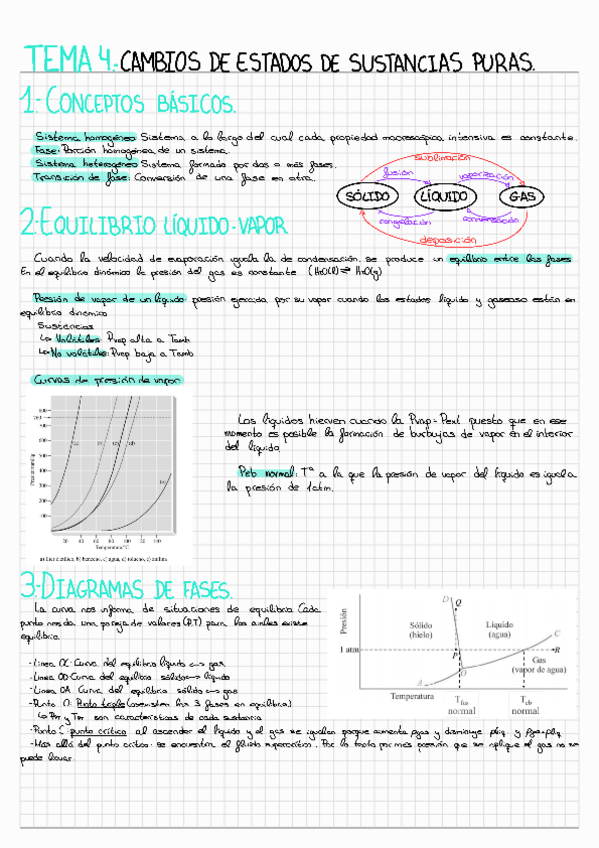 TEMA 4.- CAMBIOS DE ESTADOS DE SUSTANCIAS PURAS.
1.- CONCEPTOS BÁSICOS.
Sistema homogéneo: Sistema a lo largo del cual cada propiedad macroscópica intensiva es constante.
Fase: Porción homogénea de un sistema.
Sistema heterogéneo: Sistema formado por dos o más fases.
Transición de fase: Conversión de una fase en otra.
sublimación
fusión
vaporización
SÓLIDO
LÍQUIDO
GAS
congelación
condensación
deposición
2.- EQUILIBRIO LÍQUIDO-VAPOR
Cuando la velocidad de evaporación iguala la de condensación, se produce un equilibrio entre las fases
En el equilibrio dinámico la presión del gas es constante (H2O(l) ⇌ H2O(g)
Presión de vapor de un líquido: presión ejercida por su vapor cuando los estados líquido y gaseoso están en
equilibrio dinámico
Sustancias
↳ Volátiles: Pvap alta a Tamb
↳ No volátiles: Pvap baja a Tamb
Curvas de presión de vapor
Los líquidos hierven cuando la Pvap = Pext puesto que en ese
momento es posible la formación de burbujas de vapor en el interior
del líquido.
Peb normal: Tª a la que la presión de vapor del líquido es igual a
la presión de 1 atm.
800
760
700
600
500
400
300
200
100
Presión
20 40 60 80 100 120 140
Temperatura °C
3.- DIAGRAMAS DE FASES.
La curva nos informa de situaciones de equilibrio. Cada
punto nos da una pareja de valores (P,T) para los cuales existe
equilibrio.
- Línea OC: Curva del equilibrio líquido ↔ gas
- Línea OD: Curva del equilibrio sólido ↔ líquido
- Línea OA: Curva del equilibrio sólido ↔ gas
- Punto O: Punto triple (coexisten las 3 fases en equilibrio)
↳ PPT y TPT son características de cada sustancia
- Punto C: punto crítico al ascender el líquido y el gas se igualan porque aumenta ρgas y disminuye ρliq. y ρg=ρliq
- Más allá del punto crítico se encuentra el fluido supercrítico. Por lo tanto por más presión que se aplique el gas no se
puede licuar.
Presión
1 atm
D
Q
Sólido
(hielo)
Líquido
(agua)
C
P
R
O
Gas
(vapor de agua)
A
Temperatura
Tfus
normal
Teb
normal